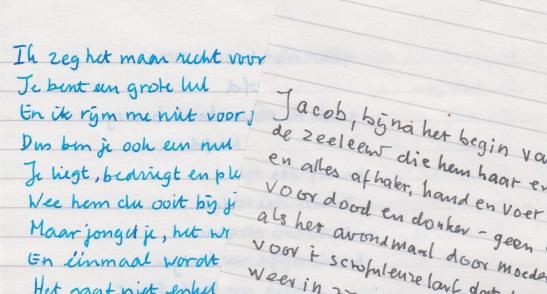 Ik zeg het maar recht voor
Je bent een grote lul
En ik rijm me niet voor j
Dus ben je ook een nul
Je liegt, bedriegt en pl
Wee hem die ooit bij ji
Maar jongetje, het w
En éénmaal wordt
Het gaat niet enkel
Jacob, bijna het begin va
de zeeleeuw die hem haar en
en alles afhakt, hand en voet
voor dood en donker - geen
als het avondmaal door moeder
voor 't scrofuleuze
weer in